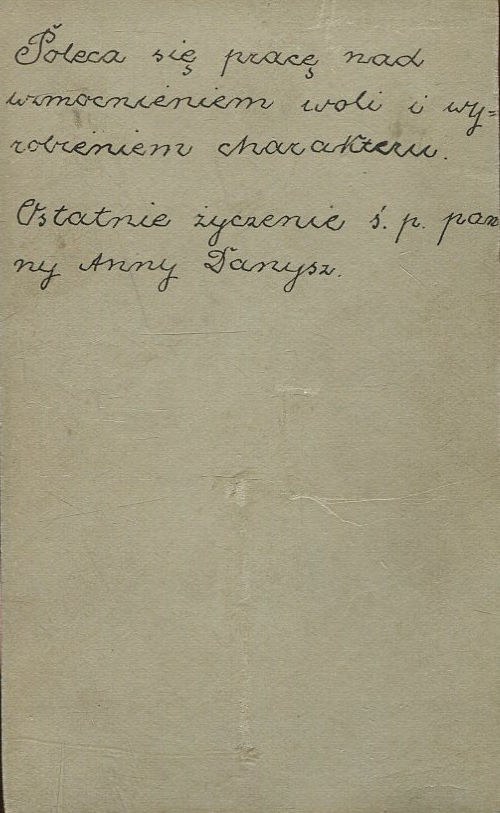 Poleca się pracę nad
wzmocnieniem woli i wy=
robieniem charakteru.
Ostatnie życzenie ś. p. pan
ny Anny Danysz.